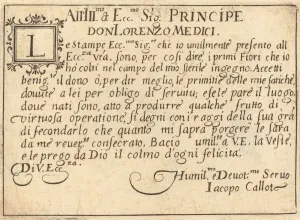 All Ill.mo & Ecc.mo Sig. PRINCIPE
DON LORENZO MEDICI.
LE stampe Ecc.mo Sig.re che io umilmente presento all
Ecc.za Vra. sono, per cosi dire, i primi Fiori che io
hò colti nel campo del mio sterile ingegno. Accetti
benig.te il dono ò, per dir meglio, le primitie delle mie fatiche,
douute a lei per obligo di seruitu; e se le pare il luogo,
doue nati sono, atto à produrre qualche frutto di
virtuosa operatione, si degni con i raggi della sua gra.
di fecondarlo che quanto mi saprà porgere le sarà
da me reuer.te consecrato. Bacio umil.te a V.E. la Veste,
e le prego da Dio il colmo d'ogni felicità.
Di V. Ecc.za
Humil.mo e Deuot.mo Seruo
Iacopo Callot